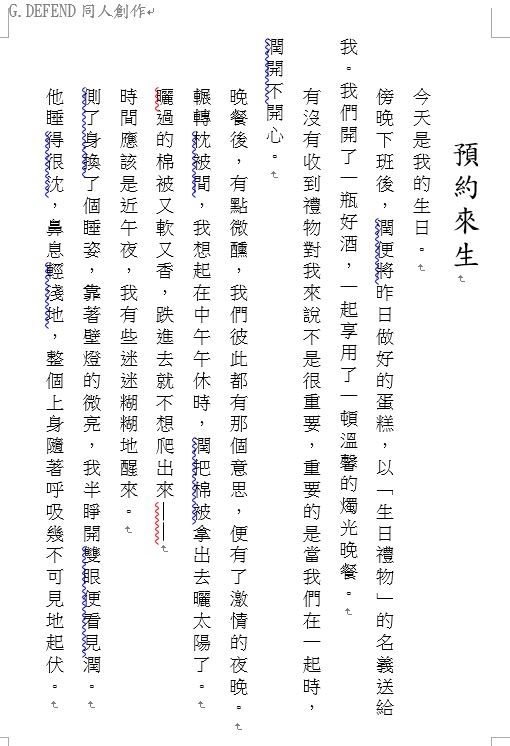 G.DEFEND 同人創作
預約來生
今天是我的生日。
傍晚下班後，潤便將昨日做好的蛋糕，以「生日禮物」的名義送給
我。我們開了一瓶好酒，一起享用了一頓溫馨的燭光晚餐。
有沒有收到禮物對我來說不是很重要，重要的是當我們在一起時，
潤開不開心。
晚餐後，有點微醺，我們彼此都有那個意思，便有了激情的夜晚。
輾轉枕被間，我想起在中午午休時，潤把棉被拿出去曬太陽了。
曬過的棉被又軟又香，跌進去就不想爬出來——
時間應該是近午夜，我有些迷迷糊糊地醒來。
側了身換了個睡姿，靠著壁燈的微亮，我半睜開雙眼便看見潤。
他睡得很沈，鼻息輕淺地，整個上身隨著呼吸幾不可見地起伏。